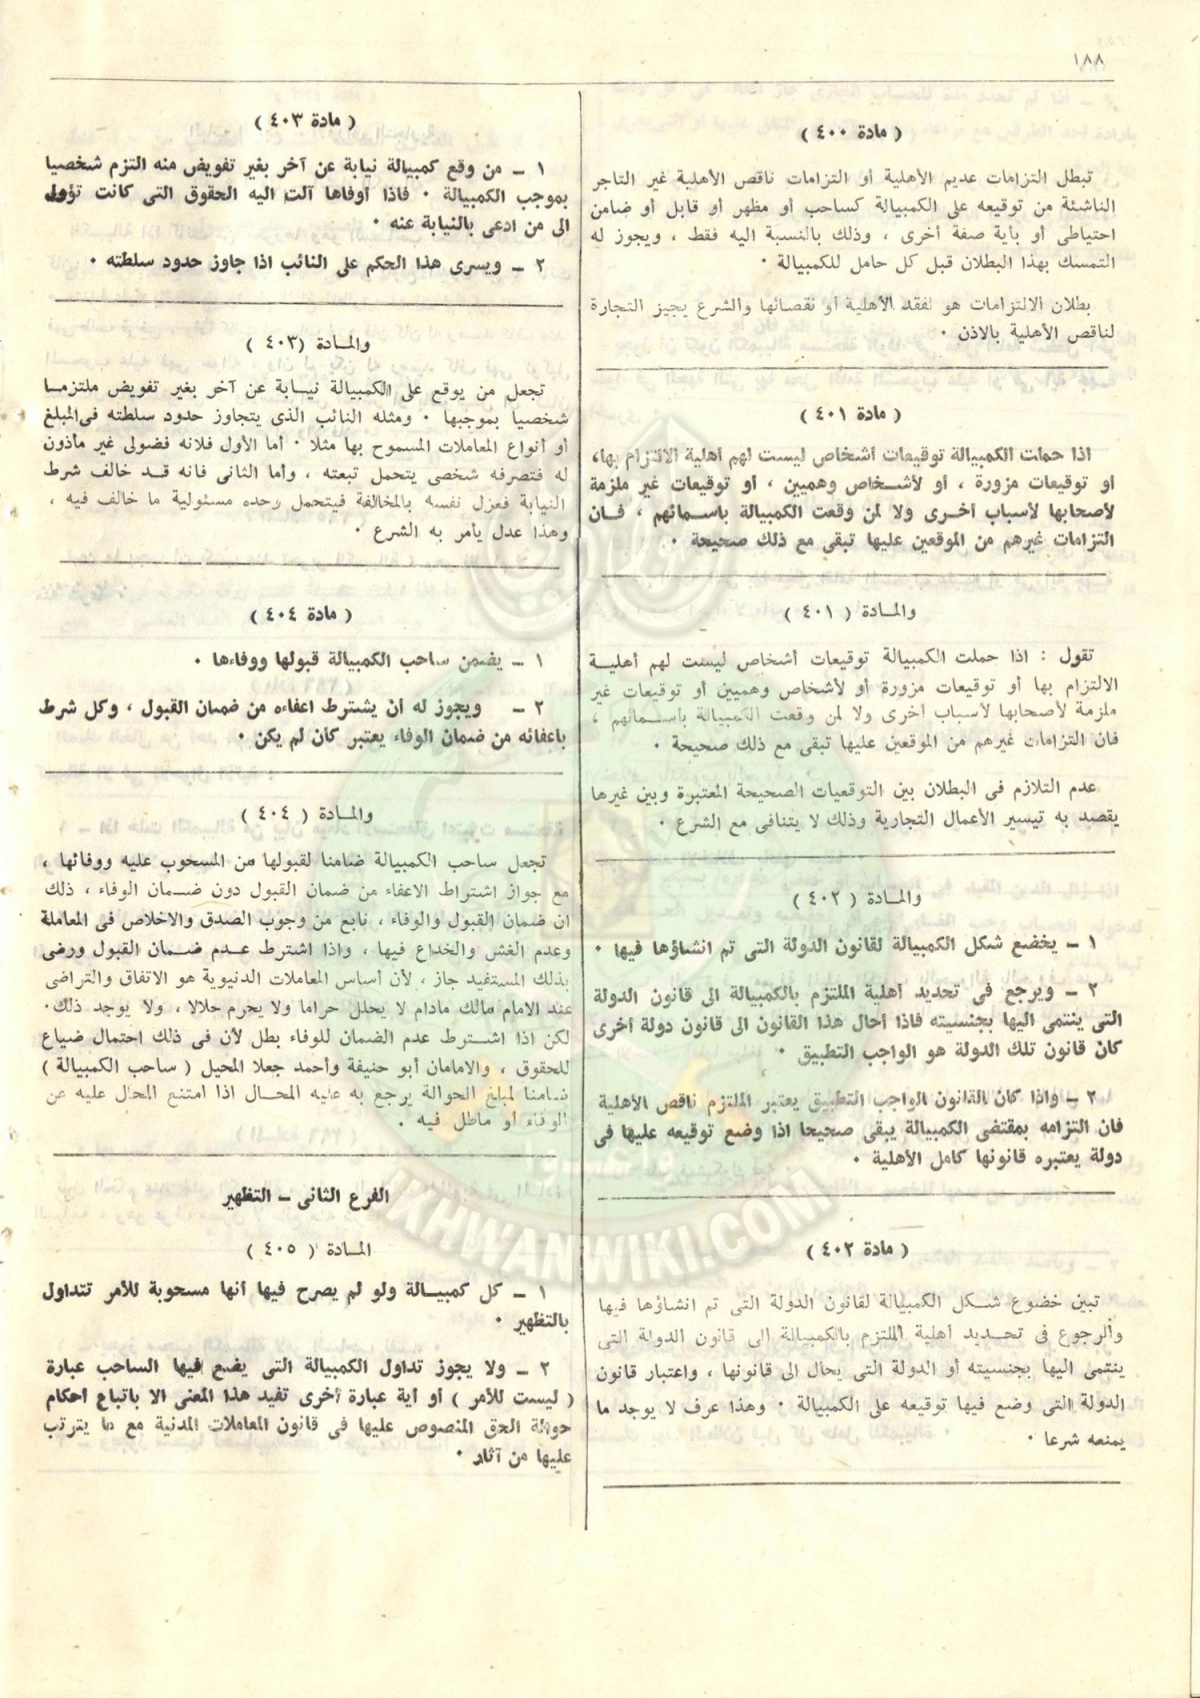 ١٨٨
( مادة ٤٠٠ )
تبطل التزامات عديم الأهلية أو التزامات ناقص الأهلية غير التاجر
الناشئة من توقيعه على الكمبيالة كساحب أو مظهر أو قابل أو ضامن
احتياطى أو بأية صفة أخرى ، وذلك بالنسبة اليه فقط ، ويجوز له
التمسك بهذا البطلان قبل كل حامل للكمبيالة ·
بطلان الالتزامات هو لفقد الأهلية أو نقصانها والشرع يجيز التجارة
لناقص الأهلية بالاذن ·
( مادة ٤٠١ )
اذا حملت الكمبيالة توقيعات أشخاص ليست لهم أهلية الالتزام بها،
او توقيعات مزورة ، او لأشخاص وهميين ، أو توقيعات غير ملزمة
لأصحابها لأسباب أخرى ولا لمن وقعت الكمبيالة بأسمائهم ، فان
التزامات غيرهم من الموقعين عليها تبقى مع ذلك صحيحة ·
والمادة ( ٤٠١ )
تقول : اذا حملت الكمبيالة توقيعات أشخاص ليست لهم أهلية
الالتزام بها أو توقيعات مزورة أو لأشخاص وهميين أو توقيعات غير
ملزمة لأصحابها لأسباب أخرى ولا لمن وقعت الكمبيالة بأسمائهم ،
فان التزامات غيرهم من الموقعين عليها تبقى مع ذلك صحيحة ·
عدم التلازم فى البطلان بين التوقعيات الصحيحة المعتبرة وبين غيرها
يقصد به تيسير الأعمال التجارية وذلك لا يتنافى مع الشرع ·
والمادة ( ٤٠٢ )
١ – يخضع شكل الكمبيالة لقانون الدولة التى تم انشاؤها فيها ·
٢ – ويرجع فى تحديد أهلية الملتزم بالكمبيالة الى قانون الدولة
التى ينتمى اليها بجنسيته فاذا أحال هذا القانون الى قانون دولة أخرى
كان قانون تلك الدولة هو الواجب التطبيق ·
٢ – واذا كان القانون الواجب التطبيق يعتبر الملتزم ناقص الأهلية
فان التزامه بمقتضى الكمبيالة يبقى صحيحا اذا وضع توقيعه عليها فى
دولة يعتبره قانونها كامل الأهلية ·
( مادة ٤٠٢ )
تبين خضوع شكل الكمبيالة لقانون الدولة التى تم انشاؤها فيها
والرجوع فى تحديد أهلية الملتزم بالكمبيالة الى قانون الدولة التى
ينتمى اليها بجنسيته أو الدولة التى يحال الى قانونها ، واعتبار قانون
الدولة التى وضع فيها توقيعه على الكمبيالة · وهذا عرف لا يوجد ما
يمنعه شرعا ·
( مادة ٤٠٣ )
١ – من وقع كمبيالة نيابة عن آخر بغير تفويض منه التزم شخصيا
بموجب الكمبيالة · فاذا أوفاها آلت اليه الحقوق التى كانت تؤول
الى من ادعى بالنيابة عنه ·
٢ – ويسرى هذا الحكم على النائب اذا جاوز حدود سلطته ·
والمادة (٤٠٣ )
تجعل من يوقع على الكمبيالة نيابة عن آخر بغير تفويض ملتزما
شخصيا بموجبها · ومثله النائب الذى يتجاوز حدود سلطته فى المبلغ
أو أنواع المعاملات المسموح بها مثلا · أما الأول فلانه فضولى غير مأذون
له فتصرفه شخصى يتحمل تبعته ، وأما الثانى فانه قد خالف شرط
النيابة فعزل نفسه بالمخالفة فيتحمل وحده مسئولية ما خالف فيه ،
وهذا عدل يأمر به الشرع ·
( مادة ٤٠٤ )
١ – يضمن ساحب الكمبيالة قبولها ووفاءها ·
٢ – ويجوز له أن يشترط اعفاءه من ضمان القبول ، وكل شرط
باعفائه من ضمان الوفاء يعتبر كان لم يكن ·
والمادة ( ٤٠٤ )
تجعل ساحب الكمبيالة ضامنا لقبولها من المسحوب عليه ووفائها ،
مع جواز اشتراط الاعفاء من ضمان القبول دون ضمان الوفاء ، ذلك
ان ضمان القبول والوفاء ، نابع من وجوب الصدق والاخلاص فى المعاملة
وعدم الغش والخداع فيها ، واذا اشترط عدم ضمان القبول ورضى
بذلك المستفيد جاز ، لأن أساس المعاملات الدنيوية هو الاتفاق والتراضى
عند الامام مالك مادام لا يحلل حراما ولا يحرم حلالا ، ولا يوجد ذلك·
لكن اذا اشترط عدم الضمان للوفاء بطل لأن فى ذلك احتمال ضياع
للحقوق ، والامامان أبو حنيفة وأحمد جعلا المحيل ( ساحب الكمبيالة )
ضامنا لمبلغ الحوالة يرجع به عليه المحال اذا امتنع المحال عليه عن
الوفاء أو ماطل فيه ·
الفرع الثانى – التظهير
المادة ( ٤٠٥ )
١ – كل كمبيالة ولو لم يصرح فيها أنها مسحوبة للأمر تتداول
بالتظهير ·
٢ – ولا يجوز تداول الكمبيالة التى يضع فيها الساحب عبارة
( ليست للأمر ) أو أية عبارة أخرى تفيد هذا المعنى الا باتباع احكام
حوالة الحق المنصوص عليها فى قانون المعاملات المدنية مع ما يترتب
عليها من آثار ·
IKHWANWIKI.COM